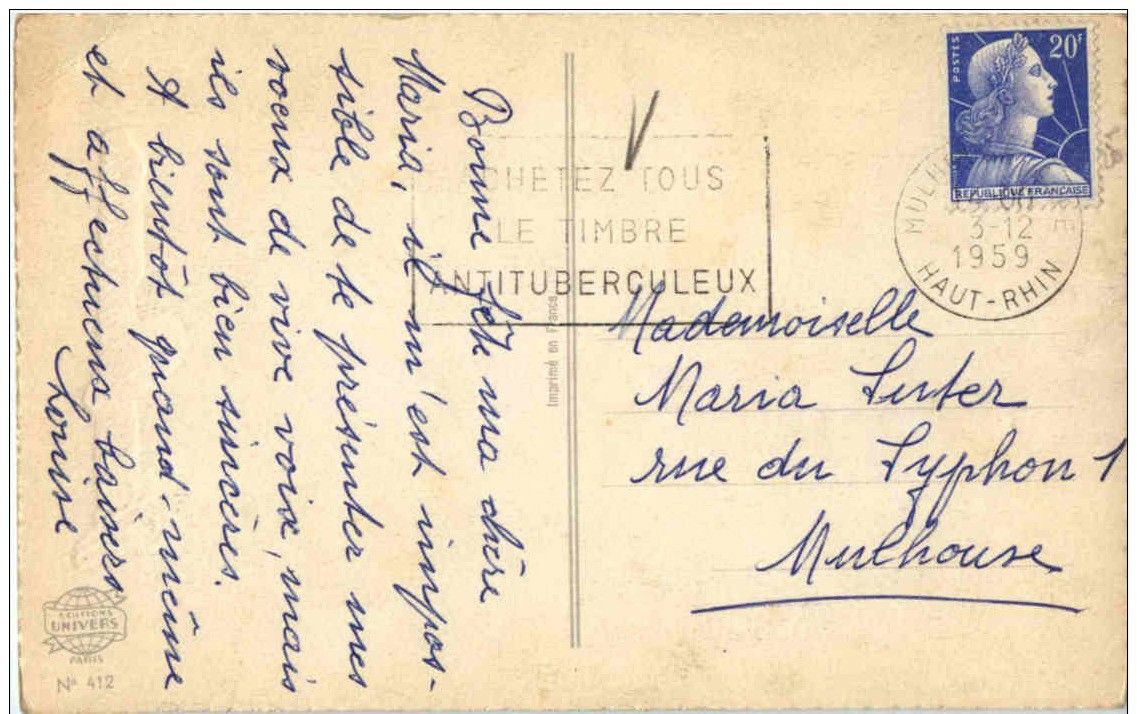 Bonne fête ma chère
Maria, il m'est impos-
sible de te présenter mes
voeux de vive voix, mais
ils sont bien sincères.
A bientôt quand-même
et affectueux baisers
Louise
EDITIONS
UNIVERS
PARIS
N° 412
Imprimé en France
CHETEZ TOUS
LE TIMBRE
ANTITUBERCULEUX
POSTES
20F
REPUBLIQUE FRANÇAISE
3-12
1959
HAUT-RHIN
Mademoiselle
Maria Suter
rue du Syphon 1
Mulhouse